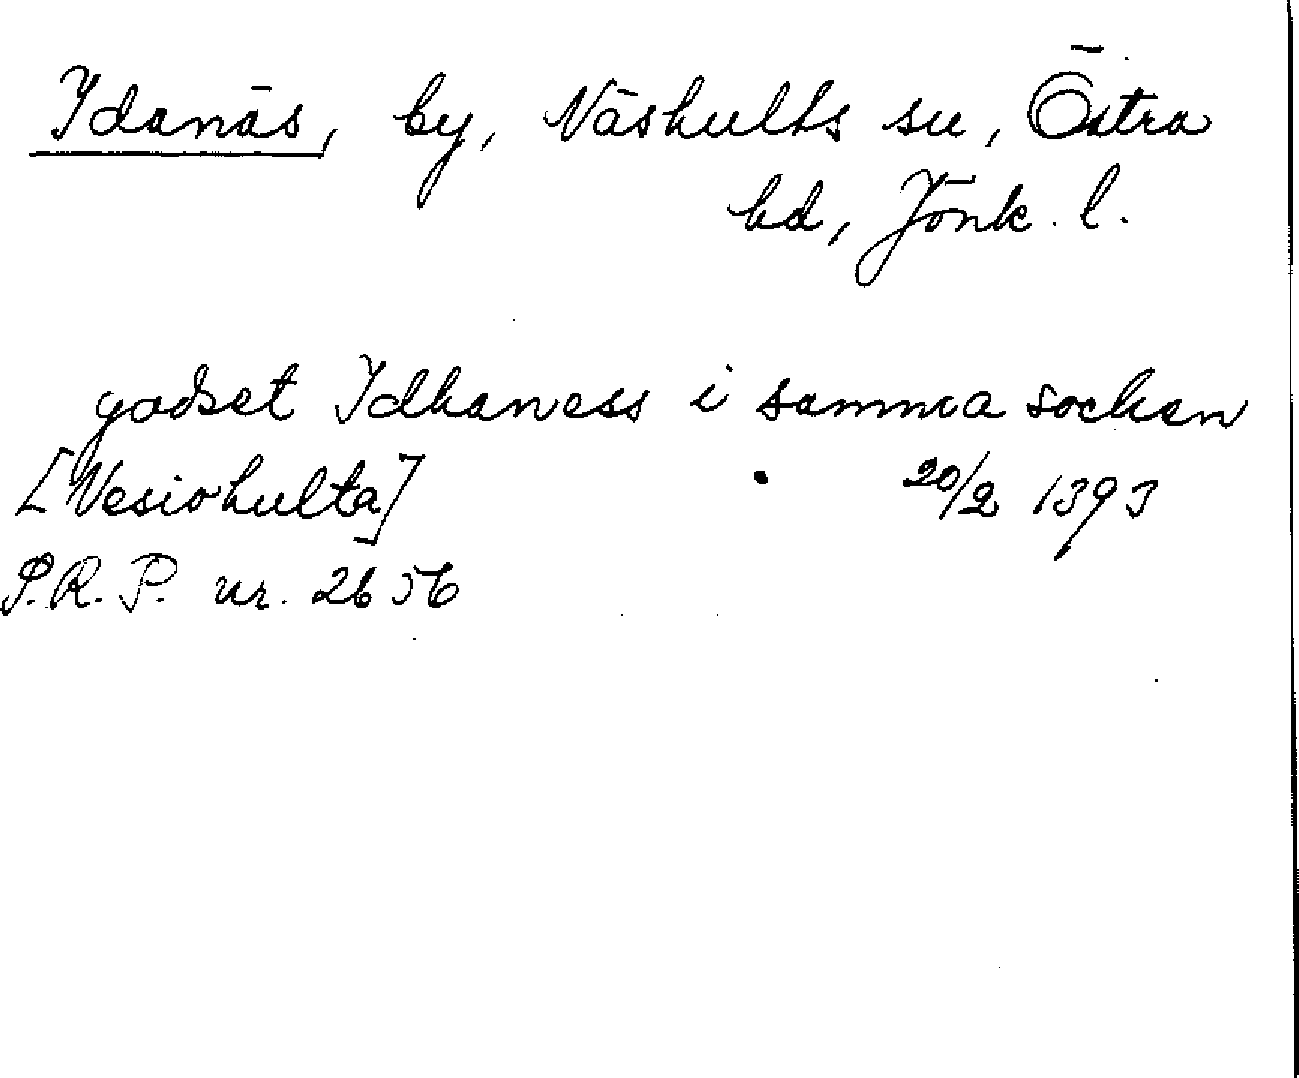 Idanäs, by, Näshults sn, Östra
hd, Jönk. l.
godset Idhaness i samma socken
[Nesiohulta] 20/2 1393
P.R.P. nr. 2656